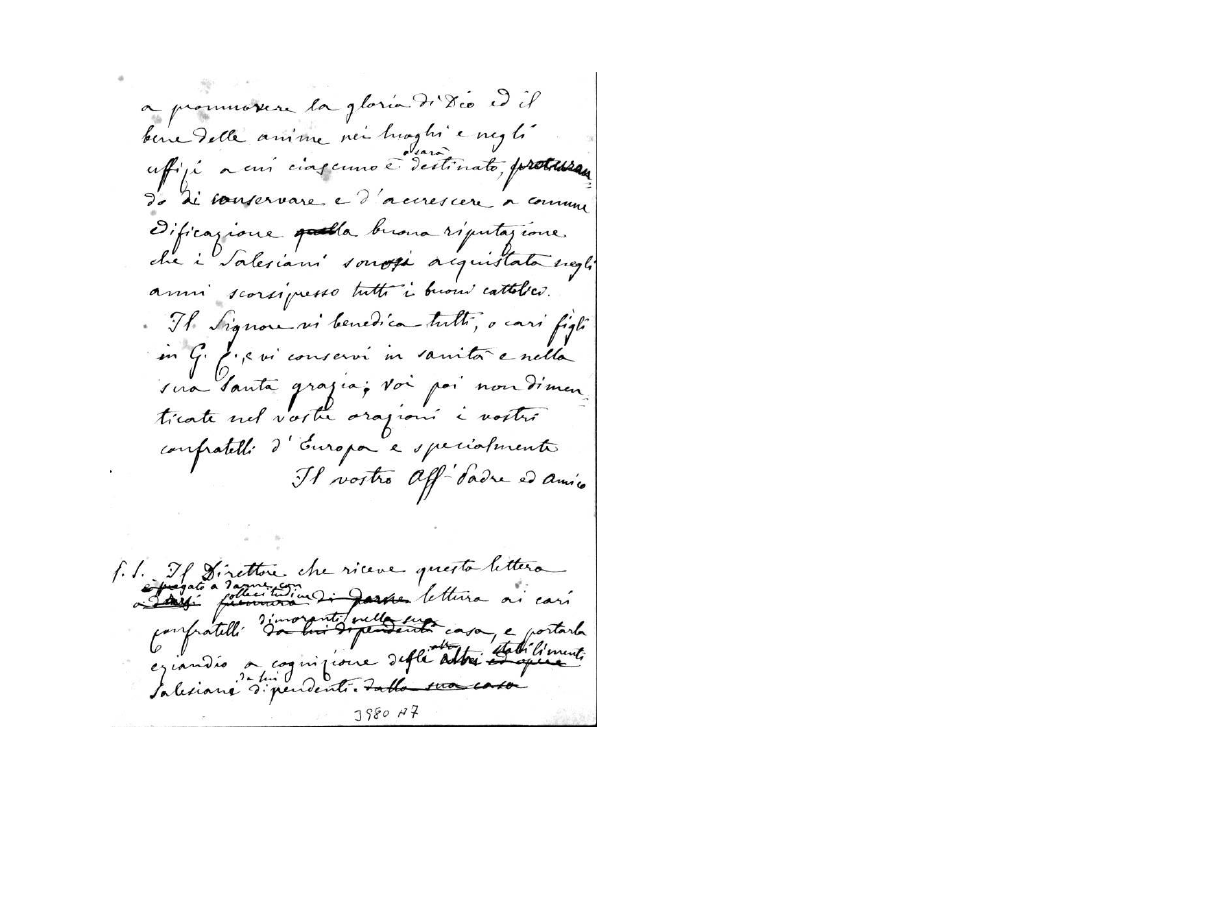 a promuovere la gloria di Dio ed il
bene delle anime nei luoghi e negli
o sarà
uffizi a cui ciascuno è destinato, procuran=
do di conservare e d'accrescere a comune
edificazione quella buona riputazione
che i Salesiani sonosi acquistata negli
anni scorsi presso tutti i buoni cattolici.
Il Signore vi benedica tutti, o cari figli
in G. C., e vi conservi in sanità e nella
sua Santa grazia; voi poi non dimen=
ticate nel vostre orazioni i vostri
confratelli d'Europa e specialmente
Il vostro Aff Padre ed Amico
P.S. Il Direttore che riceve questa lettera
è pregato a darne con
sollecitudine
a darsi premura di darne lettura ai cari
dimoranti nella sua
confratelli da lui dipendenti casa, e portarla
altri stabilimenti
eziandio a cognizione degli altri ed opere
da lui
Salesiani dipendenti. dalla sua casa
3980 A7